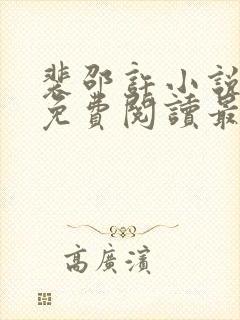 裴邵許小說
免費閱讀最
高廣濱